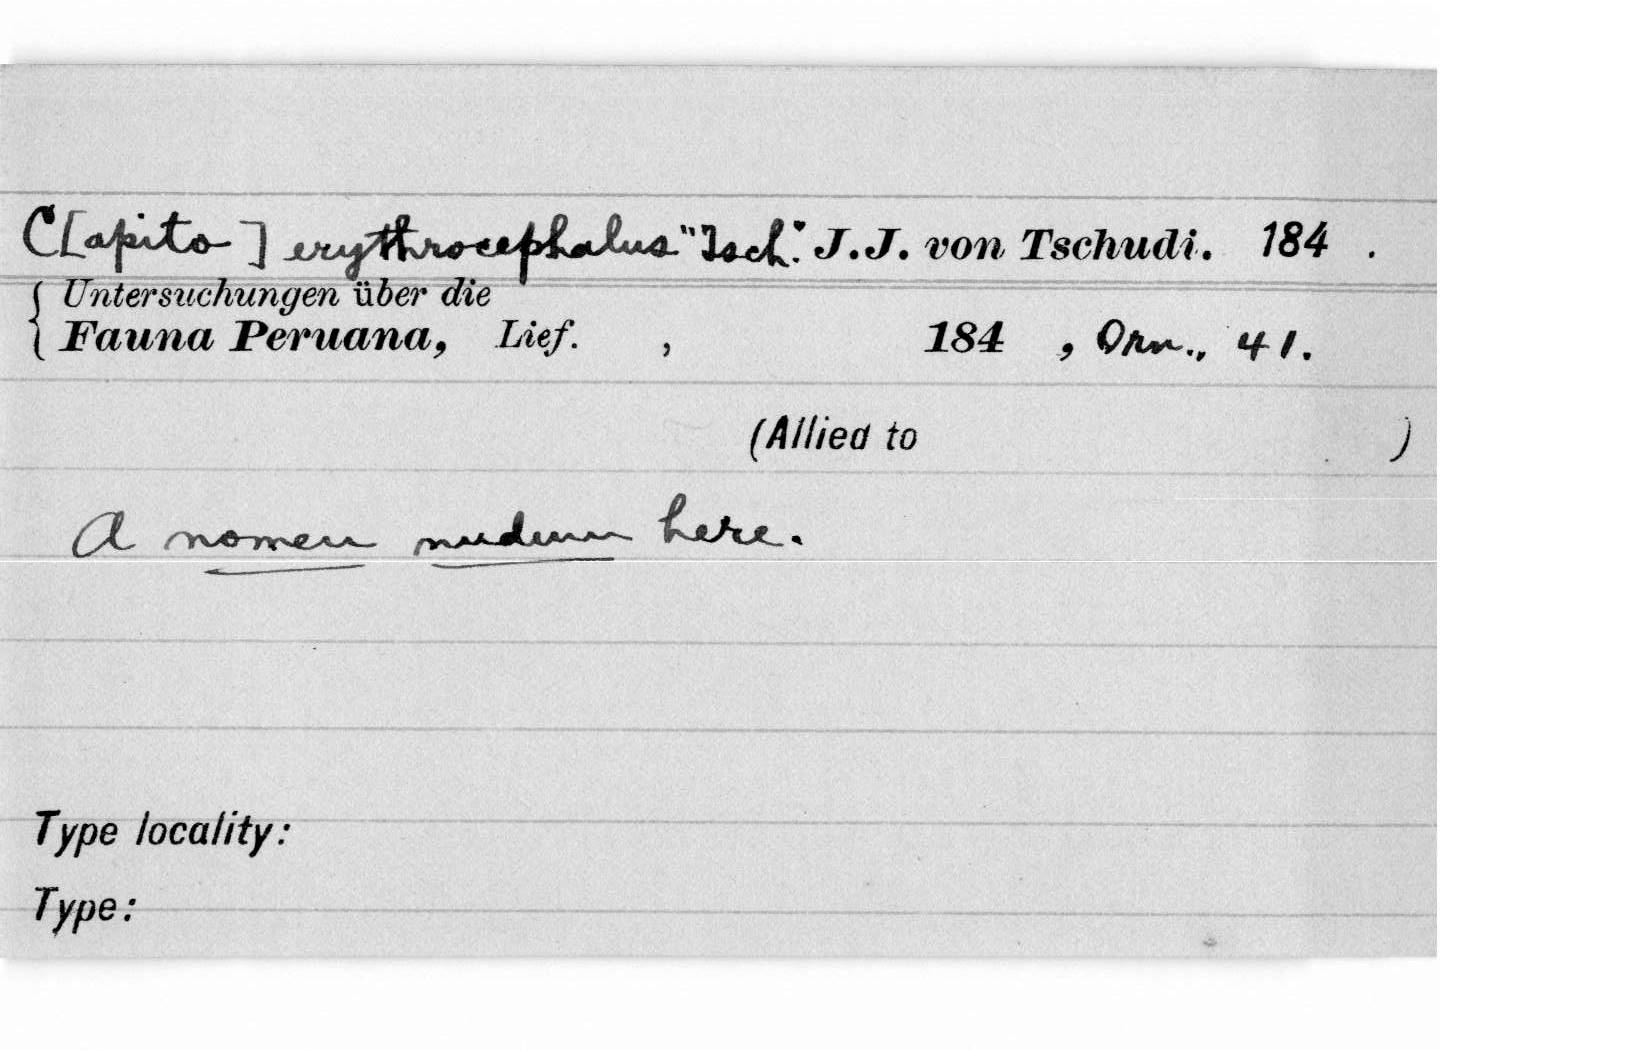 C[apito] erythrocephalus "Tsch." J.J. von Tschudi. 184 .
{ Untersuchungen über die
Fauna Peruana, Lief. , 184 , Orn., 41.
(Allied to )
A nomen nudum here.
Type locality:
Type: